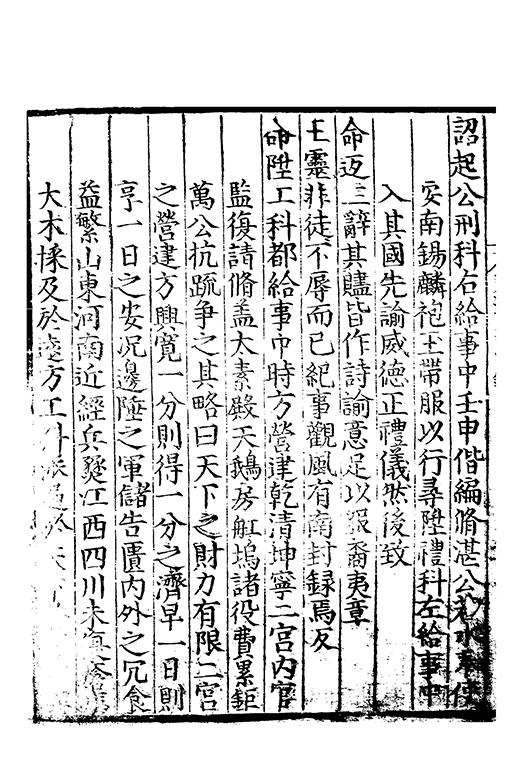 詔起公刑科右給事中壬申偕編脩湛公若水奉使
安南錫麟袍玉帶服以行尋陞禮科左給事中
入其國先諭威德正禮儀然後致
命返三辭其贐皆作詩諭意足以服裔夷章
王靈非徒不辱而已紀事觀風有南封録焉反
命陞工科都給事中時方營建乾清坤寧二宫内官
監復請脩盖太素殿天鵝房舡塢諸役費累鉅
萬公抗疏争之其略曰天下之財力有限二宫
之營建方興寛一分則得一分之濟早一日則
享一日之安况邊陲之軍儲告匱内外之冗食
益繁山東河南近經兵燹江西四川未
大木採及於遠方工